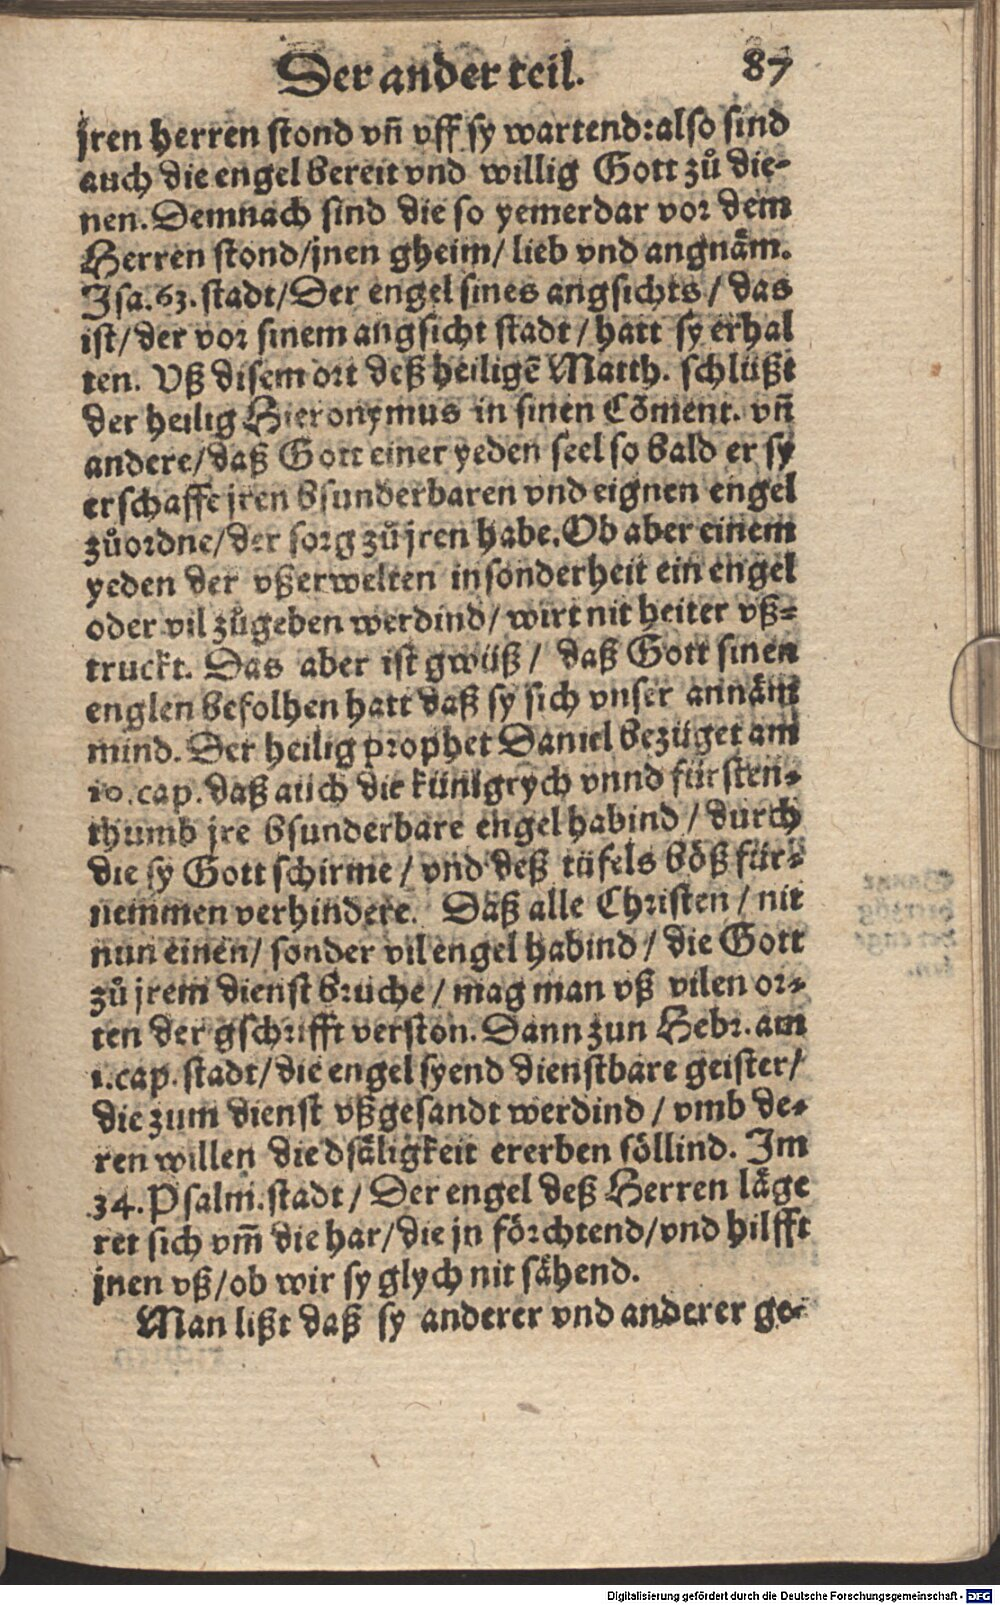 Der ander teil. 87
jren herren stond vñ vff sy wartend: also sind
auch die engel bereit vnd willig Gott zů die-
nen. Demnach sind die so yemerdar vor dem
Herren stond/ jnen gheim/ lieb vnd angnäm.
Isa. 63. stadt/ Der engel sines angsichts/ das
ist/ der vor sinem angsicht stadt/ hatt sy erhal
ten. Vß disem ort deß heiligẽ Matth. schlüßt
der heilig Hieronymus in sinen Cõment. vñ
andere/ daß Gott einer yeden seel so bald er sy
erschaffe jren bsunderbaren vnd eignen engel
zůordne/ der sorg zů jren habe. Ob aber einem
yeden der vßerwelten insonderheit ein engel
oder vil zůgeben werdind/ wirt nit heiter vß-
truckt. Das aber ist gwüß/ daß Gott sinen
englen befolhen hatt daß sy sich vnser annäm
mind. Der heilig prophet Daniel bezüget am
10. cap. daß auch die künigrych vnnd fürsten-
thumb jre bsunderbare engel habind/ durch
die sy Gott schirme/ vnd deß tüfels böß für-
nemmen verhindere. Daß alle Christen/ nit
nun einen/ sonder vil engel habind/ die Gott
zů jrem dienst bruche/ mag man vß vilen or-
ten der gschrifft verston. Dann zun Hebr. am
1. cap. stadt/ die engel syend dienstbare geister/
die zum dienst vßgesandt werdind/ vmb de-
ren willen die dsäligkeit ererben söllind. Im
34. Psalm. stadt/ Der engel deß Herren läge
ret sich vm̃ die har/ die jn förchtend/ vnd hilfft
jnen vß/ ob wir sy glych nit sähend.
Man lißt daß sy anderer vnd anderer ge-
Digitalisierung gefördert durch die Deutsche Forschungsgemeinschaft - DFG